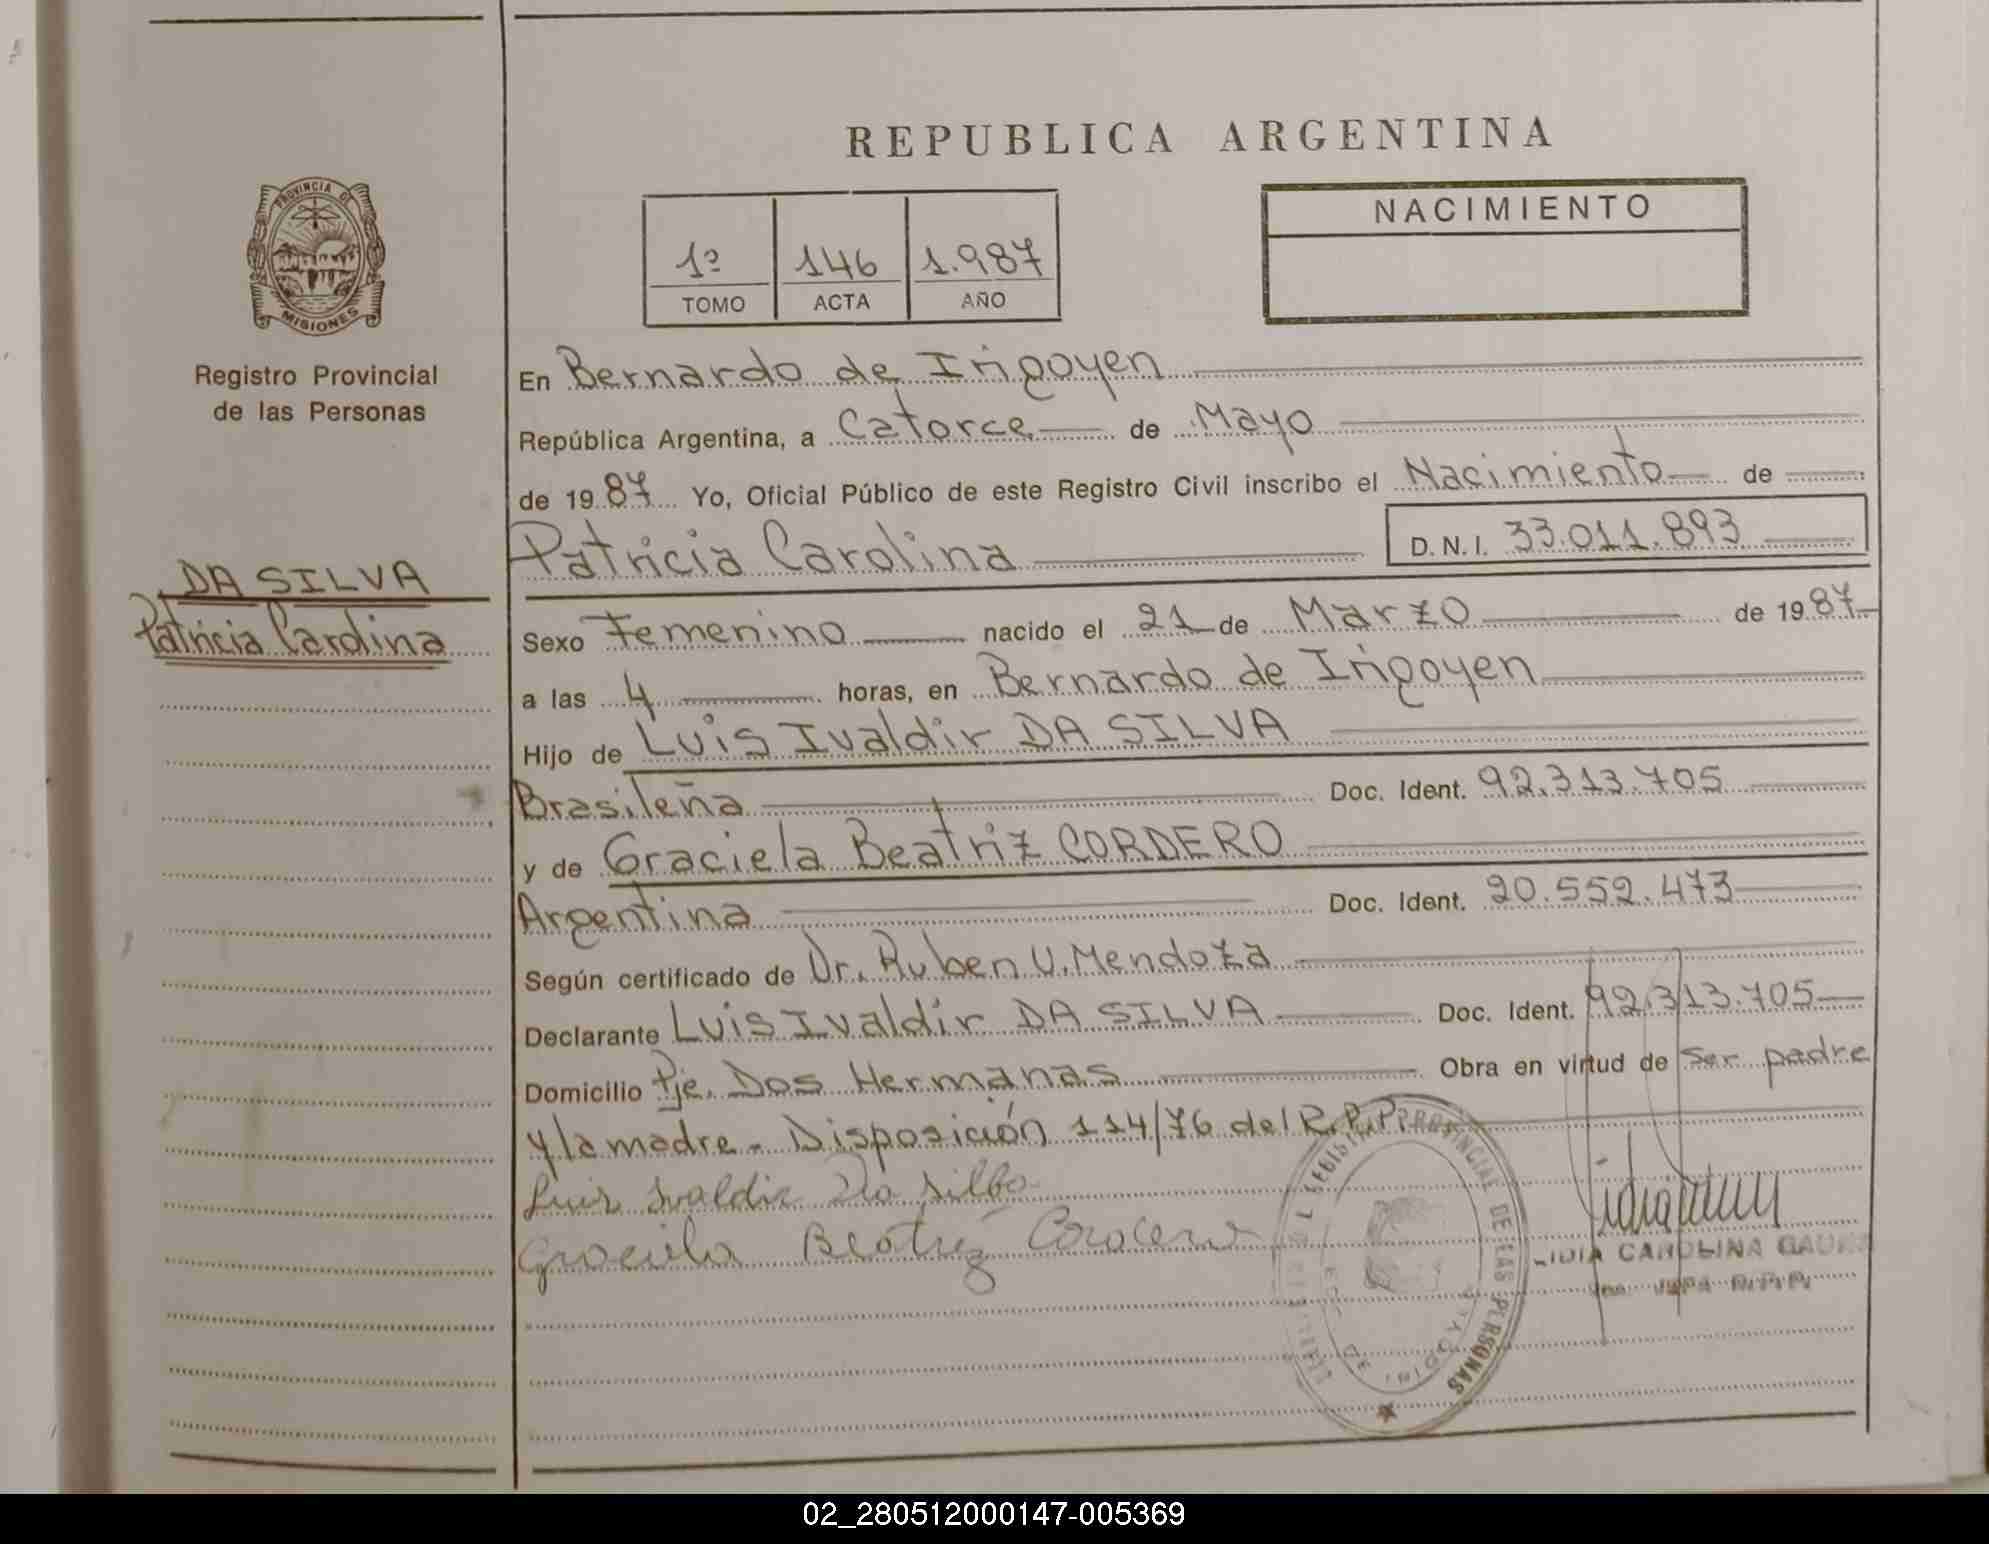 REPUBLICA ARGENTINA
PROVINCIA DE
MISIONES
Registro Provincial
de las Personas
DA SILVA
Patricia Carolina
1º 146 1.987
TOMO ACTA AÑO
NACIMIENTO
En Bernardo de Irigoyen
República Argentina, a Catorce de Mayo
de 19 87 Yo, Oficial Público de este Registro Civil inscribo el Nacimiento de
Patricia Carolina D.N.I. 33.011.893
Sexo Femenino nacido el 21 de Marzo de 19 87
a las 4 horas, en Bernardo de Irigoyen
Hijo de Luis Ivaldir DA SILVA
Brasileña Doc. Ident. 92.313.705
y de Graciela Beatriz CORDERO
Argentina Doc. Ident. 20.552.473
Según certificado de Dr. Ruben U. Mendoza
Declarante Luis Ivaldir DA SILVA Doc. Ident. 92.313.705
Domicilio Pje. Dos Hermanas Obra en virtud de ser padre
y la madre - Disposición 114/76 del R.P.P.
Luis Ivaldir Da Silba
Graciela Beatriz Cordero
PROVINCIAL DE LAS PERSONAS
CAROLINA
02_280512000147-005369